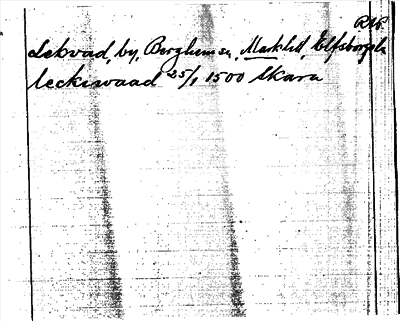 RAP.
Lekvad, by, Berghems sn, Markhd, Elfsborgs l.
leckiwaad 25/1 1500 Skara